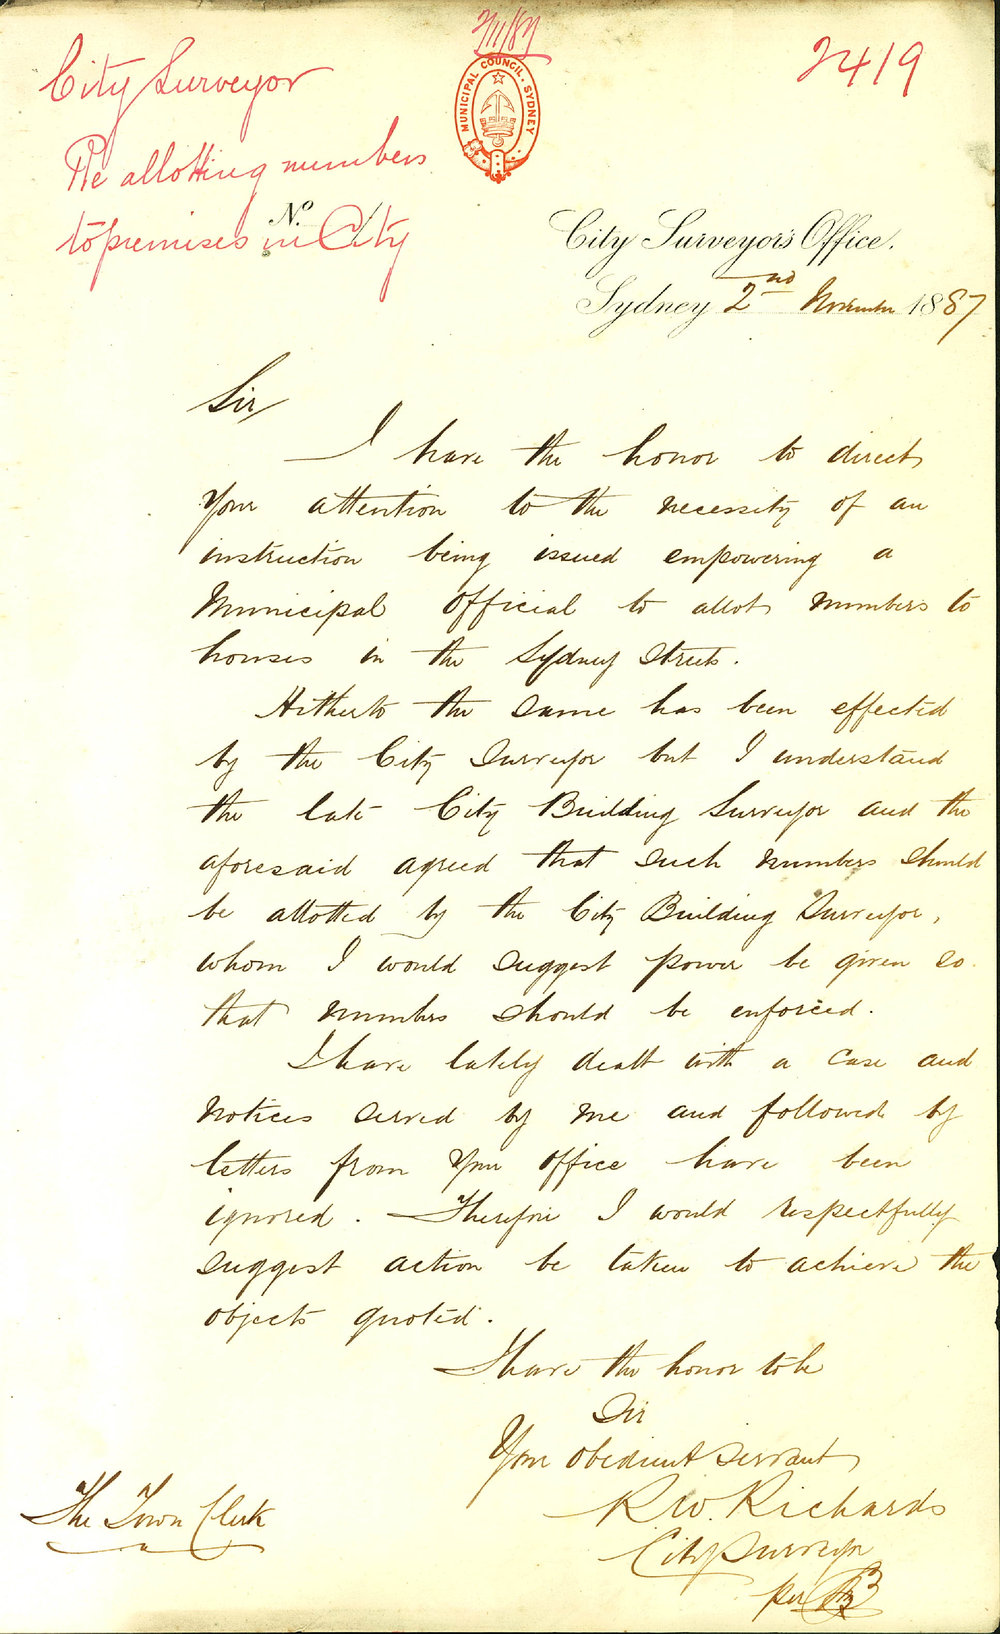 2/11/87
2419
City Surveyor
Re allotting numbers
to premises in City
MUNICIPAL COUNCIL · SYDNEY
No.
City Surveyor's Office.
Sydney 2nd November 1887
Sir,
I have the honor to direct
Your attention to the necessity of an
instruction being issued empowering a
Municipal Official to allot numbers to
houses in the Sydney Streets.
Hitherto the same has been effected
by the City Surveyor but I understand
the late City Building Surveyor and the
aforesaid agreed that such numbers should
be allotted by the City Building Surveyor,
whom I would suggest power be given so
that numbers should be enforced.
I have lately dealt with a case and
Notices served by me and followed by
letters from Your office have been
ignored. Therefore I would respectfully
suggest action be taken to achieve the
objects quoted.
I have the honor to be
Sir
Your obedient servant
R W. Richards
City Surveyor
per
The Town Clerk